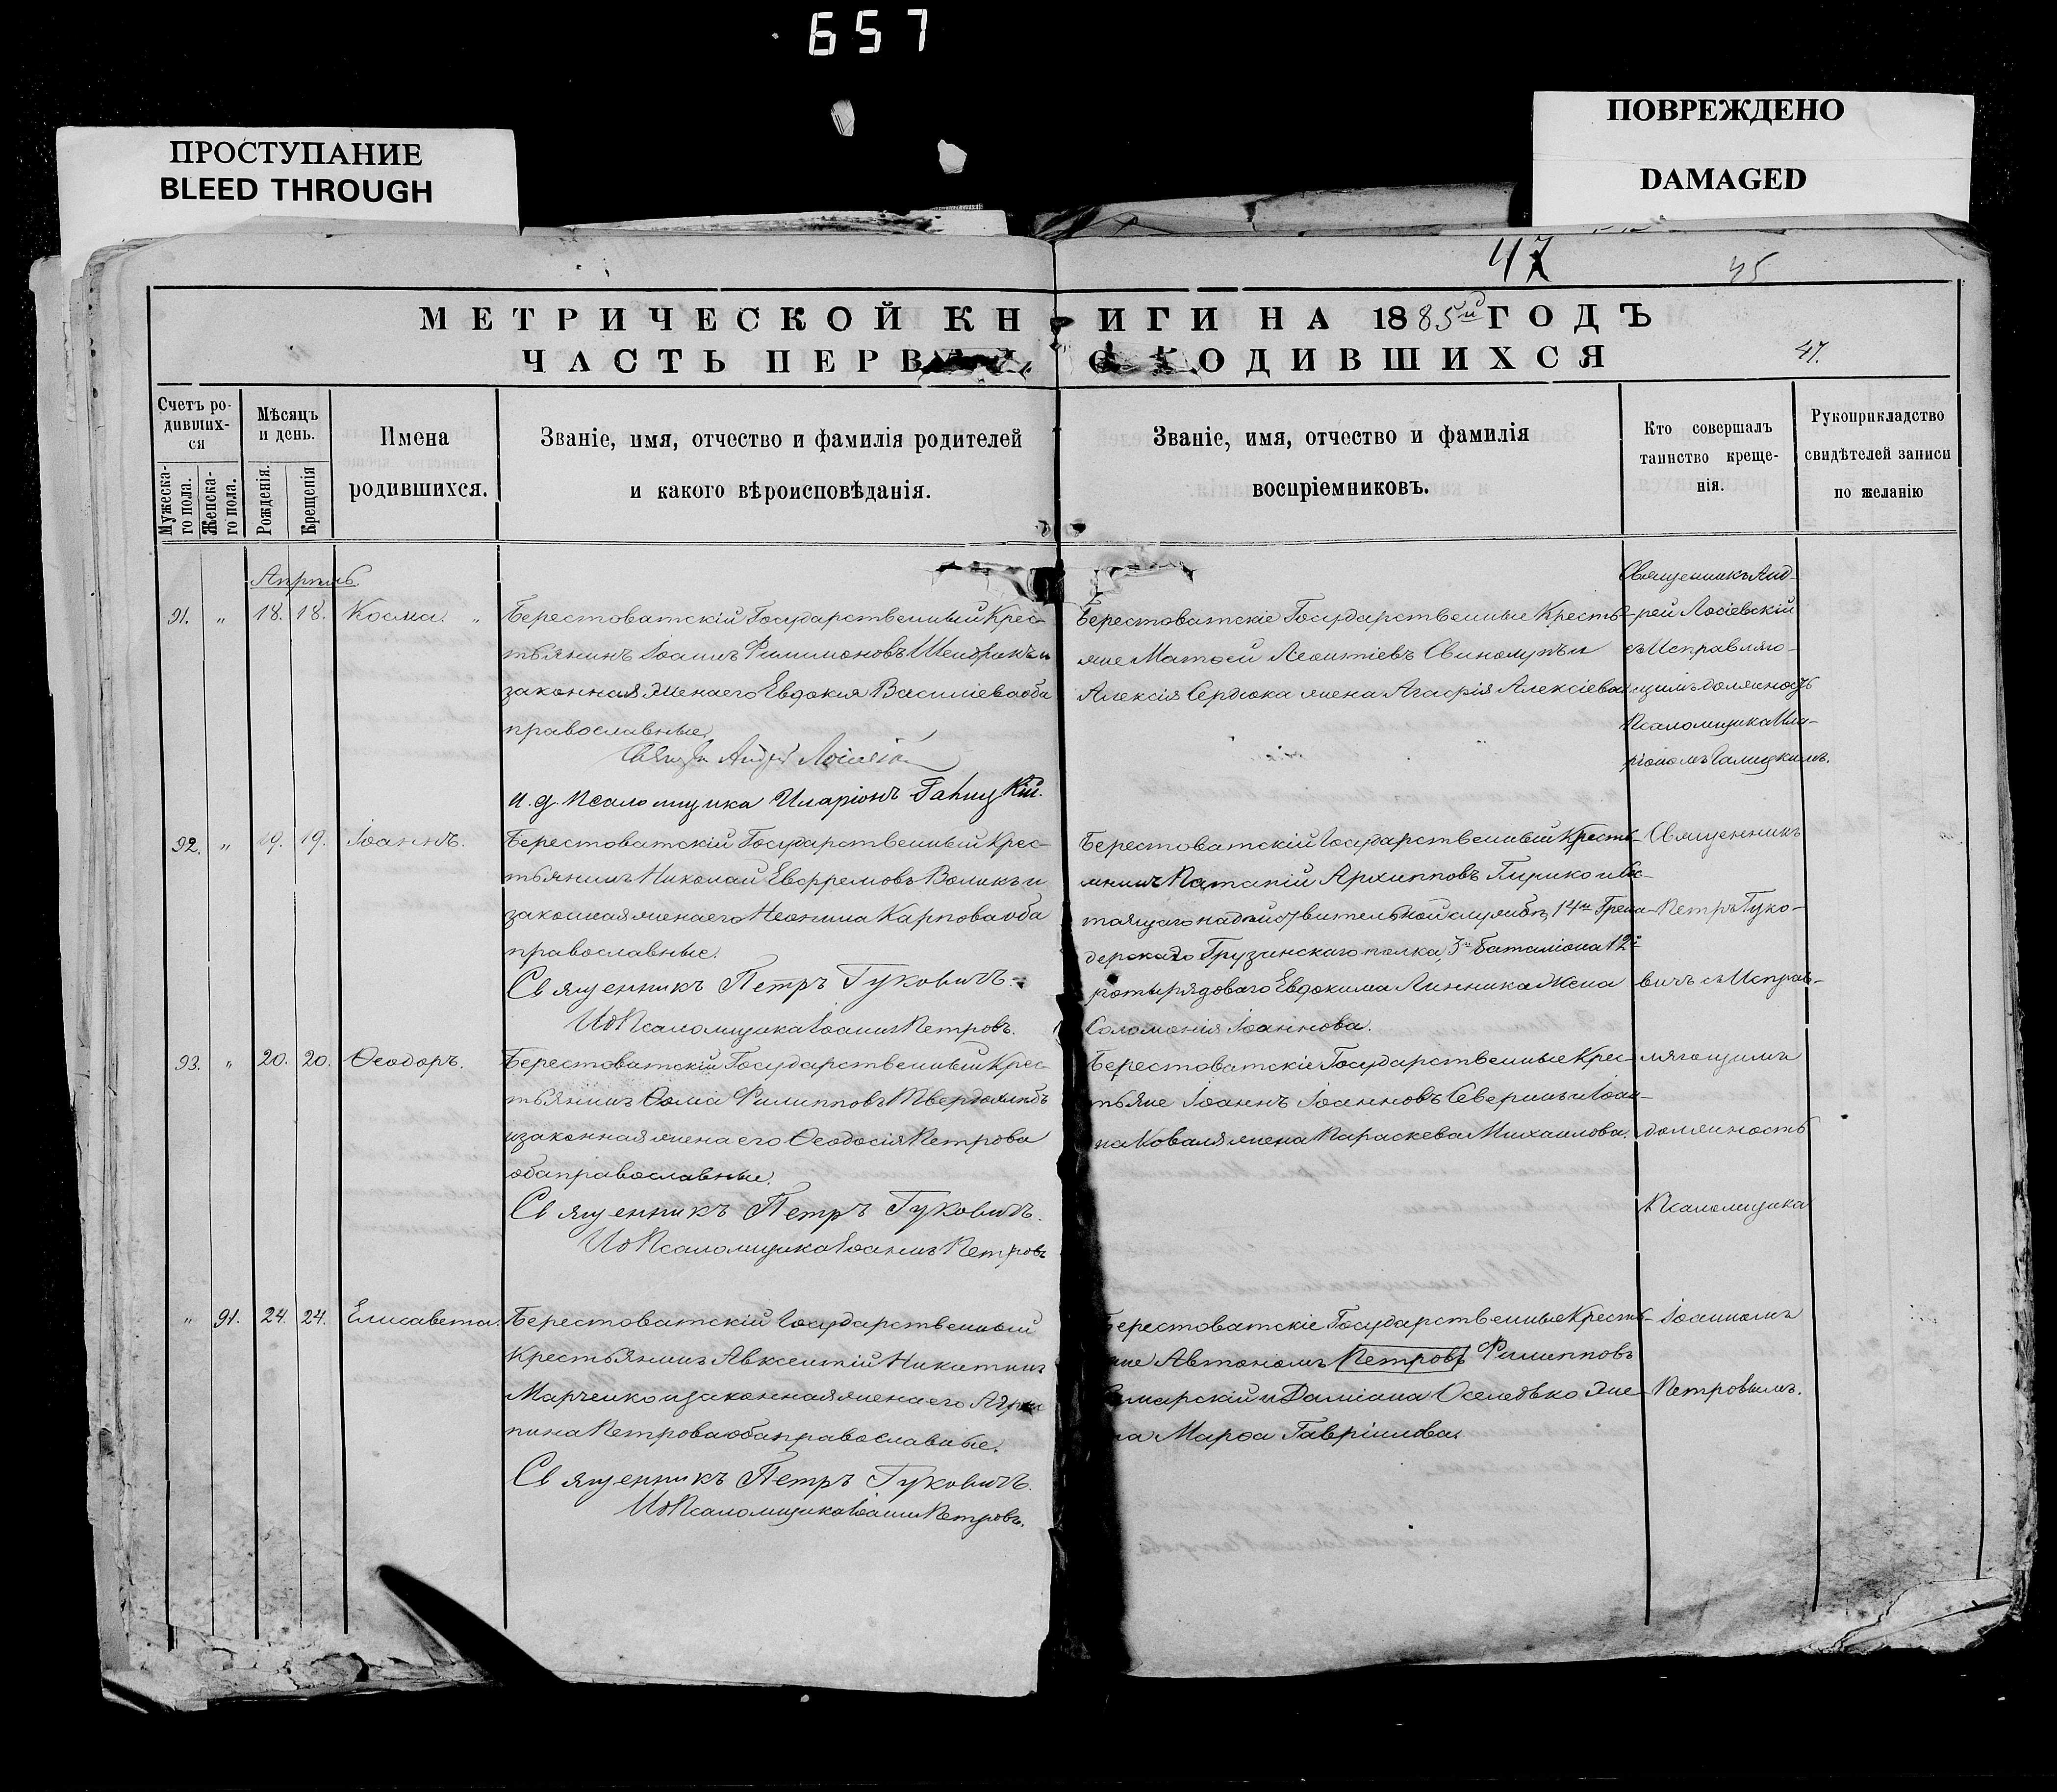 657
ПРОСТУПАНИЕ
BLEED THROUGH
ПОВРЕЖДЕНО
DAMAGED
47 45
МЕТРИЧЕСКОЙ КНИГИ НА 1885й ГОДЪ
ЧАСТЬ ПЕРВ О РОДИВШИХСЯ
47.
Счетъ ро-
дивших-
ся
Мужеска-
го пола.
Женска-
го пола.
Мѣсяцъ
и день.
Рожденія.
Крещенія
Имена
родившихся.
Званіе, имя, отчество и фамилія родителей
и какого вѣроисповѣданія.
Званіе, имя, отчество и фамилія
воспріемниковъ.
Кто совершалъ
таинство креще-
нія.
Рукоприкладство
свидѣтелей записи
по желанію
Апрѣль.
91. " 18. 18. Косма. "
Берестоватскій Государственный Крес-
тьянинъ Іоаннъ Филимоновъ и
законная жена его Евдокія Василіева оба
православные.
Андрей Лосіевскій
и. д. Псаломщика Иларіонъ Галицкій.
Берестоватскіе Государственные Кресть-
яне Матѳей Леонтіевъ и
Алексія Сердюка жена Агафія Алексіева
Священникъ Анд-
рей Лосіевскій
съ Исправляю-
щимъ должность
Псаломщика Ила-
ріономъ Галицкимъ.
92. " 19. 19. Іоаннъ.
Берестоватскій Государственный Крес-
тьянинъ Николай Евфремовъ Воликъ и
законная жена его Неонила Карпова оба
православные.
Священникъ Петръ Гуковичъ.
ИдПсаломщика Іоаннъ Петровъ.
Берестоватскій Государственный Кресть-
янинъ Патапій Архипповъ и Сос-
тоящаго на дѣйствительной службѣ, 14го Грена-
дерскаго Грузинскаго полка, 3го баталіона 12й
роты рядоваго Евдокима Линника Жена
Соломонія Іоаннова.
Священникъ
Петръ Гуко-
вичъ съ Исправ-
93. " 20. 20. Ѳеодоръ.
Берестоватскій Государственный Крес-
тьянинъ Ѳома Филипповъ Твердохлѣбъ
и законная жена его Ѳеодосія Петрова
оба православные.
Священникъ Петръ Гуковичъ.
ИдПсаломщика Іоаннъ Петровъ
Берестоватскіе Государственные Крес-
тьяне Іоаннъ Іоанновъ Северинъ и Іоан-
на Коваля жена Параскева Михаилова.
ляющимъ
должность
Псаломщика
" 91. 24. 24. Елисавета.
Берестоватскій Государственный
Крестьянинъ Авксентій Никитинъ
Марченко и законная жена его Агрип
пина Петрова оба православные.
Священникъ Петръ Гуковичъ.
ИдПсаломщика Іоаннъ Петровъ.
Берестоватскіе Государственные Кресть-
яне Автономъ Петровъ Филипповъ
и Даміана Оселедько Же-
на Марѳа Гавріилова.
Іоанномъ
Петровымъ.